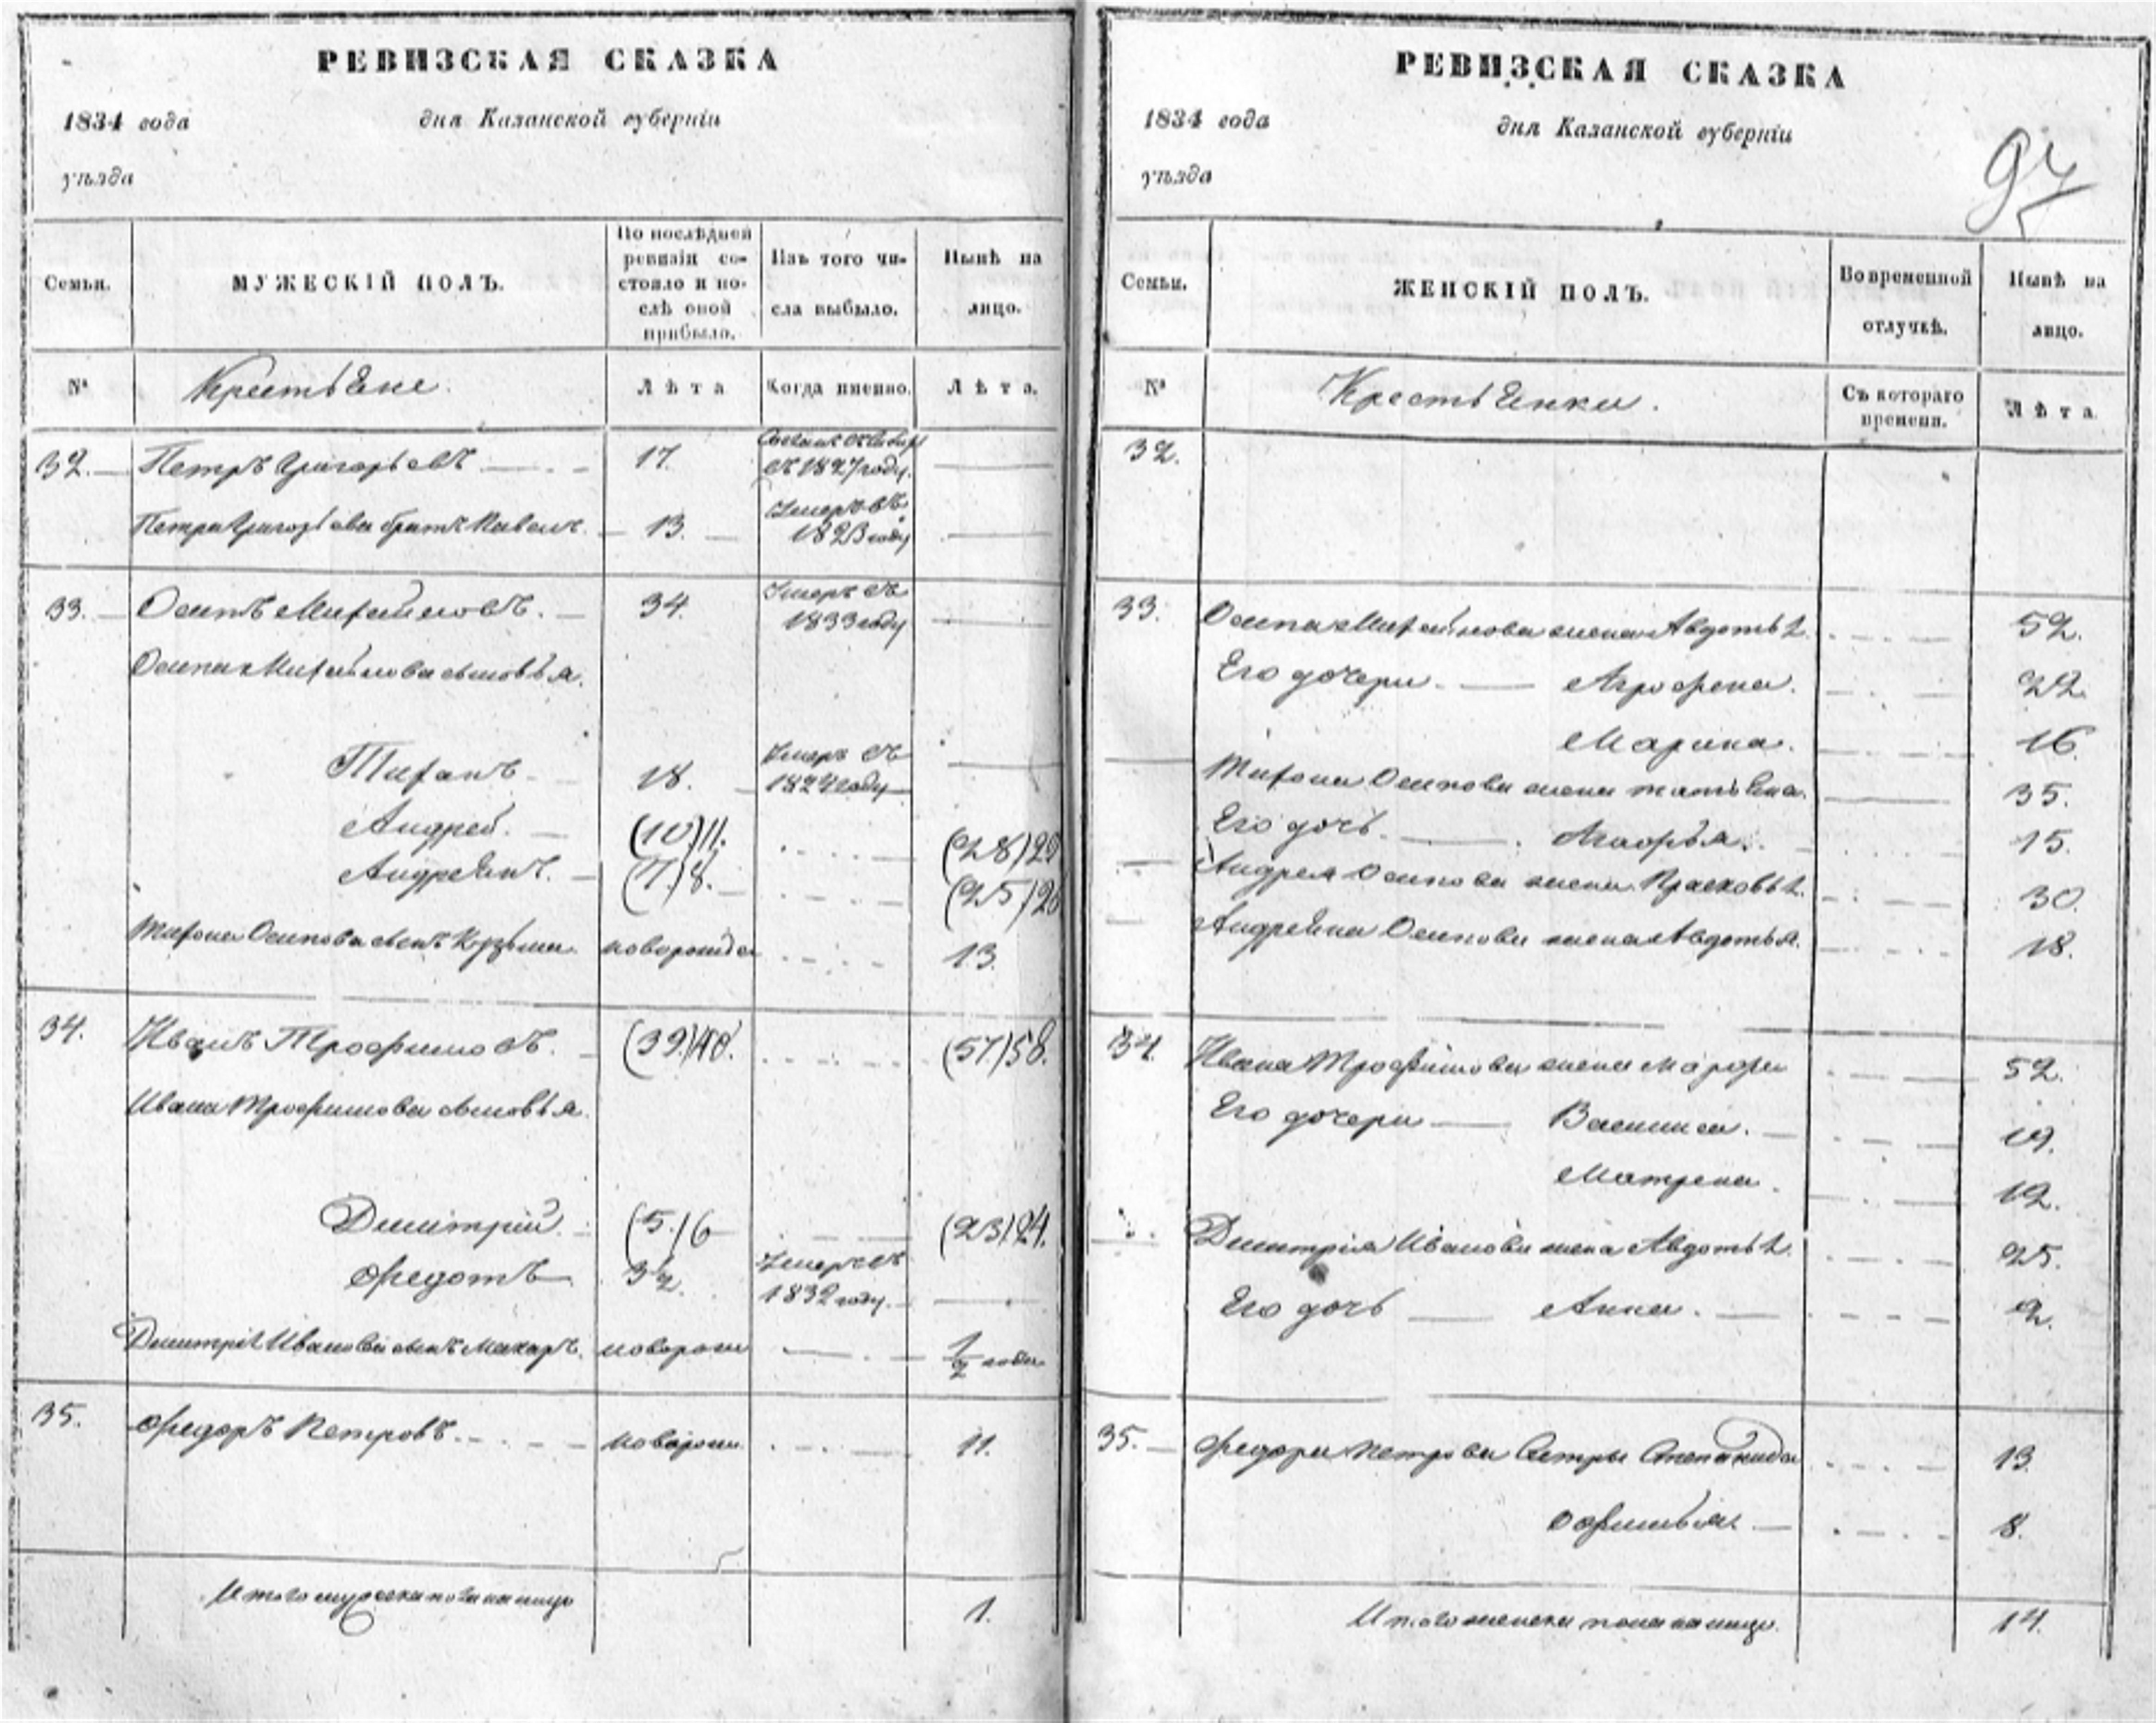 РЕВИЗСКАЯ СКАЗКА
1834 года дня Казанской губерніи
уѣзда
Семьи. МУЖЕСКІЙ ПОЛЪ. По послѣдней ревизіи состояло и послѣ оной прибыло. Изъ того числа выбыло. Нынѣ на лицо.
№ Крестьяне. Лѣта Когда именно. Лѣта.
32. Петръ Григорьевъ 17. въ 1827 году.
Петра Григорьева братъ Павелъ. 13. Умеръ въ 1823 году
33. Осипъ Михайловъ. 34. Умеръ въ 1833 году
Осипа Михайлова сыновья.
18. Умеръ въ 1824 году
Андрей. (10)11. (28)29
Андреянъ. (7.)8. (25)26
Осипова сынъ Кузьма. новорожден 13.
34. Иванъ Трофимовъ. (39)40. (57)58.
Ивана Трофимова сыновья.
Димитрій. (5.)6 (23)24.
Федотъ 3/4. Умеръ въ 1832 году.
Димитрія Иванова сынъ Макаръ.новорожд 1/2 года
35. Федоръ Петровъ. новорож. 11.
Итого мужеска пола на лицо 1.
РЕВИЗСКАЯ СКАЗКА
1834 года дня Казанской губерніи
уѣзда
97
Семьи. ЖЕНСКІЙ ПОЛЪ. Во временной отлучкѣ. Нынѣ на лицо.
№ Крестьянки. Съ котораго времени. Лѣта
32.
33. Осипа Михайлова жена Авдотья. 52.
Его дочери. Агрофена. 22.
Марина. 16.
Осипова жена Татьяна. 35.
Его дочь. 15.
Андрея Осипова жена Прасковья. 30.
Андреяна Осипова жена Авдотья. 18.
34. Ивана Трофимова жена Марфа 52.
Его дочери Василиса. 19.
Матрена. 12.
Димитрія Иванова жена Авдотья. 25.
Его дочь Анна. 2.
35. Федора Петрова сестры Степанида 13.
Офимья. 8.
Итого женска пола на лицо. 14.